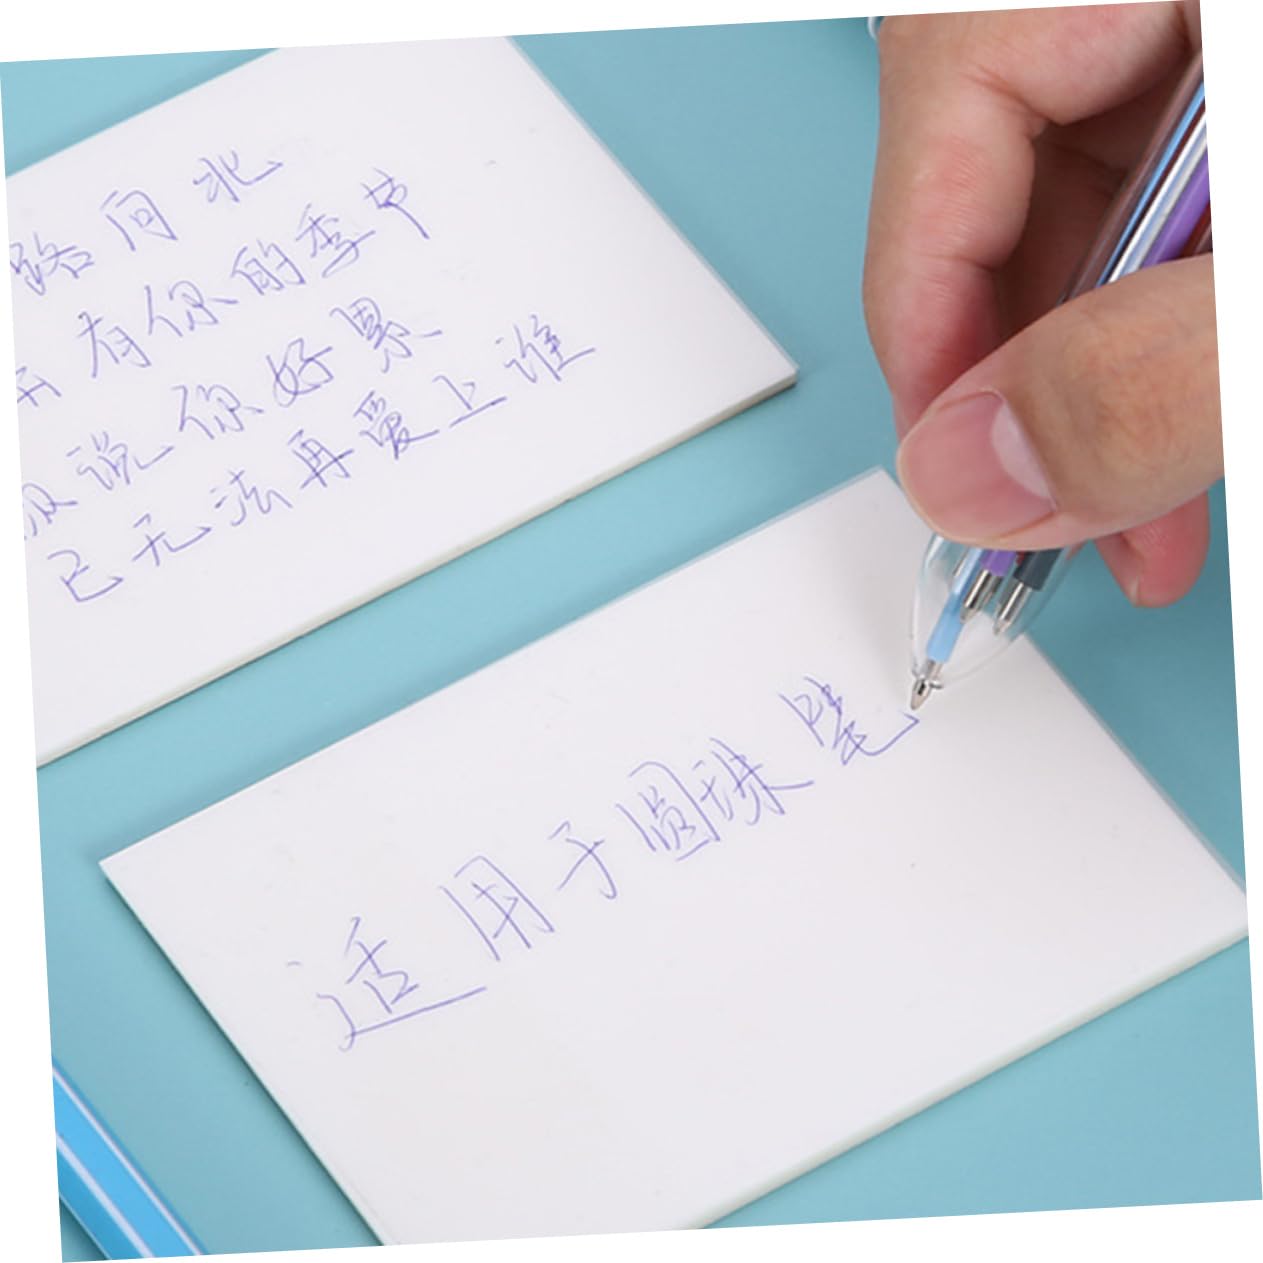 路向北
有你的季节
说你好累
已无法再爱上谁
适用于圆珠笔